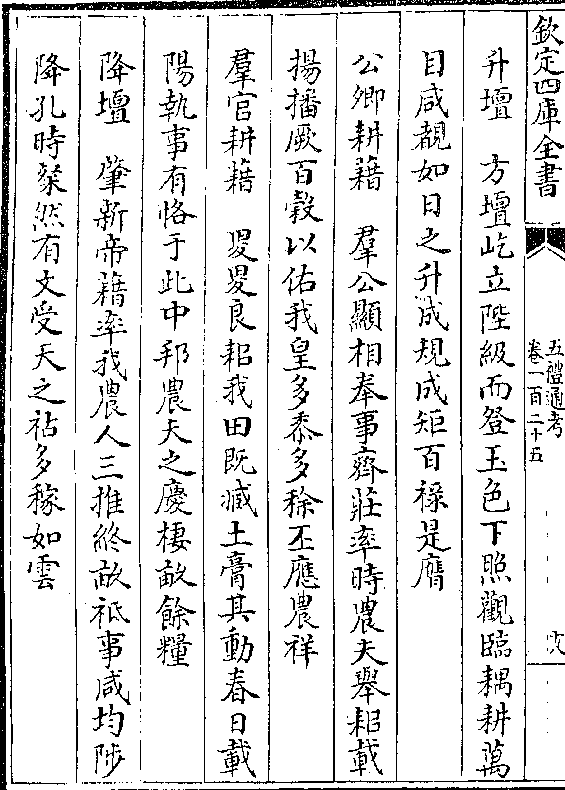 欽定四庫全書
五禮通考
卷一百二十五
升壇　方壇屹立陛級而登玉色下照觀臨耦耕萬
目咸覩如日之升成規成矩百祿是膺
公卿耕藉　羣公顯相奉事齊莊率時農夫舉耜載
揚播厥百穀以佑我皇多黍多稌丕應農祥
羣官耕藉　畟畟良耜我田既臧土膏其動春日載
陽執事有恪于此中邦農夫之慶棲畝餘糧
降壇　肇新帝藉率我農人三推終畝祗事咸均陟
降孔時粲然有文受天之祜多稼如雲